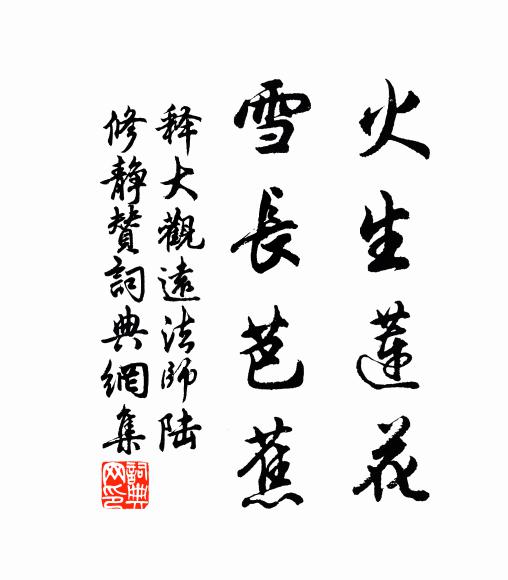 火生蓮花
雪長芭蕉
釋大觀遠法師陸
修靜贊詞典網集
詞典网印